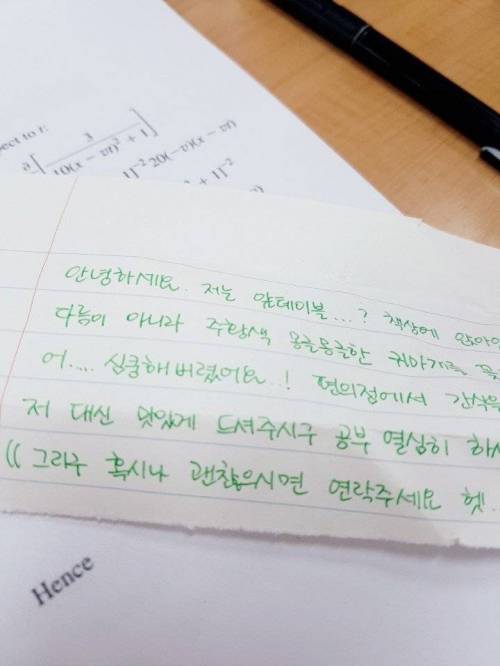 ect to t:
3
10(x − vt)² + 1
]⁻² 20(−v)(x − vt)
+ 1]⁻²
안녕하세요. 저는 앞테이블...? 책상에 앉아있
다름이 아니라 주황색 몽글몽글한 귀마개를
어.... 심쿵해버렸어요..! 편의점에서 간식을
저 대신 맛있게 드셔주시구 공부 열심히 하시
(( 그리구 혹시나 괜찮으시면 연락주세요 헷..
Hence